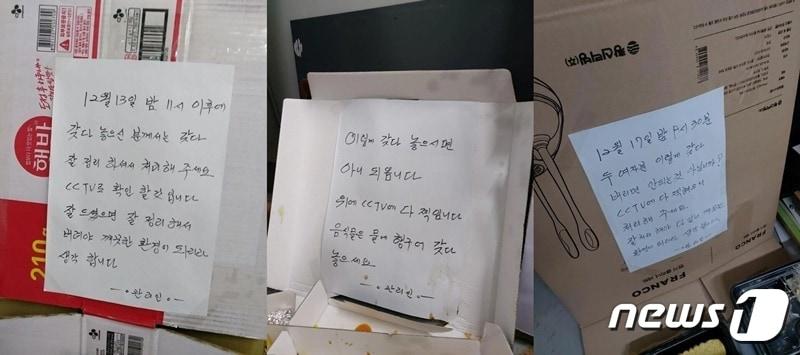 12월13일 밤 11시 이후에
갖다 놓으신 분께서는 갖다
잘 정리 하셔서 처리해 주세요
CCTV로 확인 할것 입니다
잘 드셨으면 잘 정리해서
버려야 깨끗한 환경이 되리라
생각 합니다
관리인
햇반
210g
이렇게 갖다 놓으시면
아니 되옵니다
위에 CCTV에 다 찍힙니다
음식물은 물에 헹구어 갖다
놓으세요
관리인
12월 17일 밤 30분
두 여자분 이렇게 갖다
버리면 안되는것 아닙니까?
CCTV에 다 찍혔으니
처리해 주세요
FRANCO
FRANCO
news1